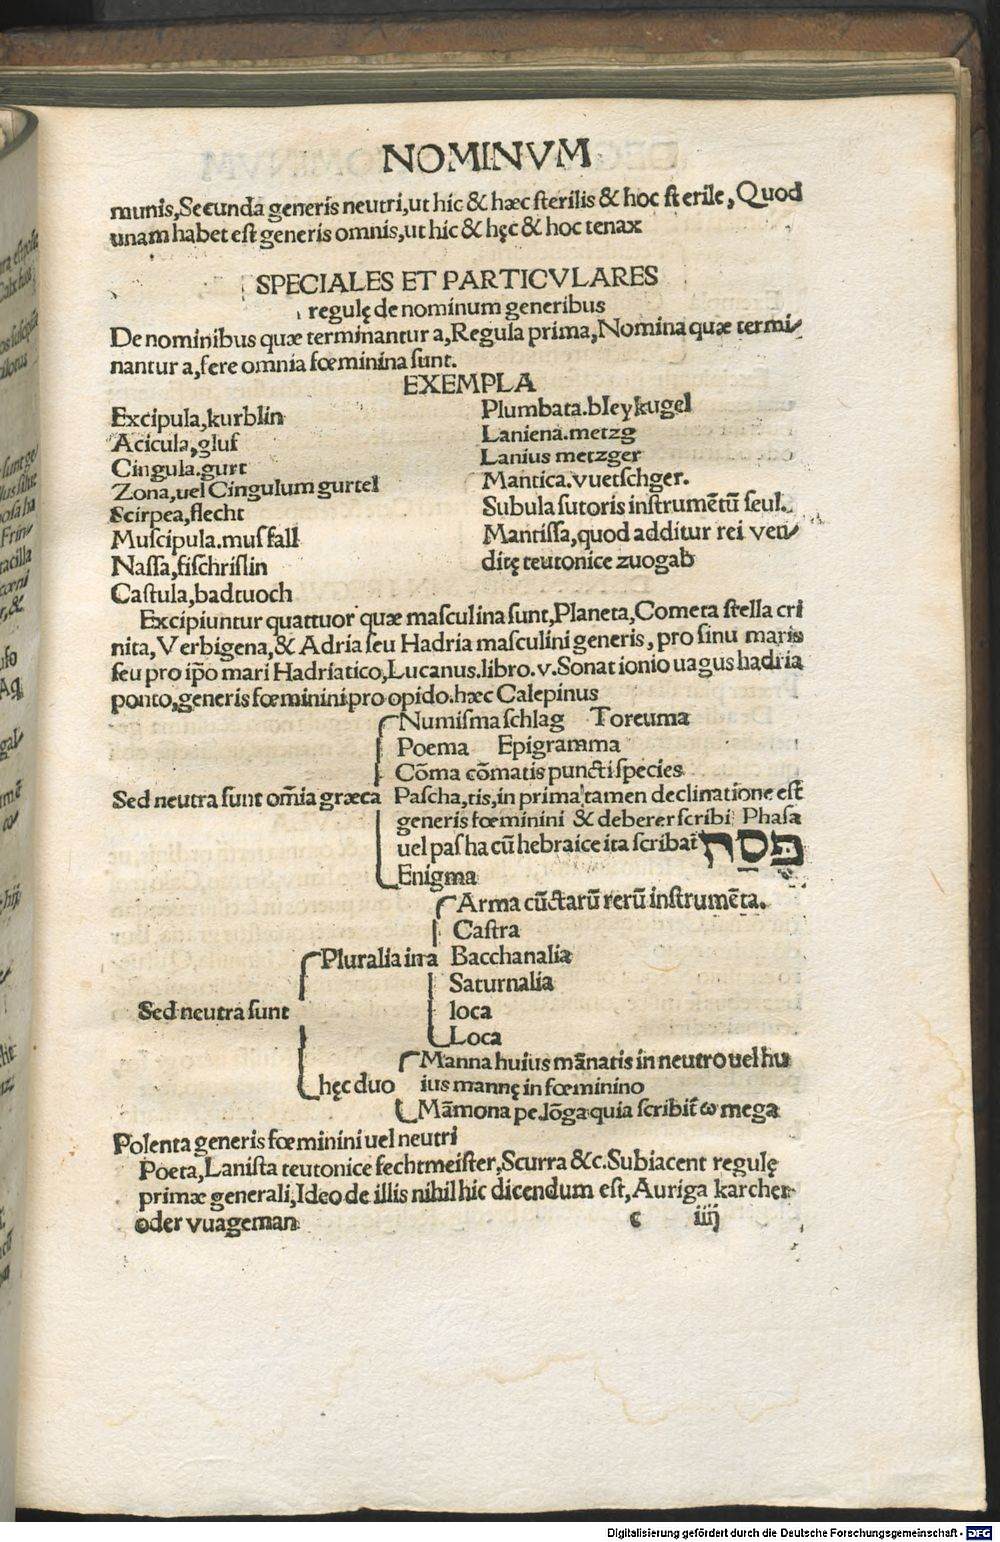 NOMINVM
munis,Secunda generis neutri,ut hic & hæc sterilis & hoc sterile,Quod
unam habet est generis omnis,ut hic & hęc & hoc tenax
SPECIALES ET PARTICVLARES
regulę de nominum generibus
De nominibus quæ terminantur a,Regula prima,Nomina quæ termi/
nantur a,fere omnia fœminina sunt.
EXEMPLA
Excipula,kurblin
Acicula,gluf
Cingula.gurt
Zona,uel Cingulum gurtel
Scirpea,flecht
Muscipula.musfall
Nassa,fischrislin
Castula,badtuoch
Plumbata.bleykugel
Laniena.metzg
Lanius metzger
Mantica.vuetschger.
Subula sutoris instrumētū seul.
Mantissa,quod additur rei ven/
ditę teutonice zuogab
Excipiuntur quattuor quæ masculina sunt,Planeta,Cometa stella cri
nita,Verbigena,& Adria seu Hadria masculini generis,pro sinu maris
seu pro ip̄o mari Hadriatico,Lucanus.libro.v.Sonat ionio uagus hadria
ponto,generis fœminini pro opido.hæc Calepinus
Numisma schlag Toreuma
Poema Epigramma
Cōma cōmatis puncti species
Sed neutra sunt om̄ia græca Pascha,tis,in prima tamen declinatione est
generis fœminini & deberer scribi Phasa
uel pasha cū hebraice ita scribat̄ פסח
Enigma
Arma cūctarū rerū instrumēta.
Castra
Pluralia in a Bacchanalia
Saturnalia
Sed neutra sunt Ioca
Loca
Manna huius mānatis in neutro uel hu
hęc duo ius mannę in fœminino
Māmona pe.lōga quia scribit̄ ω mega
Polenta generis fœminini uel neutri
Poeta,Lanista teutonice fechtmeister,Scurra &c.Subiacent regulę
primæ generali,Ideo de illis nihil hic dicendum est,Auriga karcher
oder vuageman
c iiij
Digitalisierung gefördert durch die Deutsche Forschungsgemeinschaft - DFG